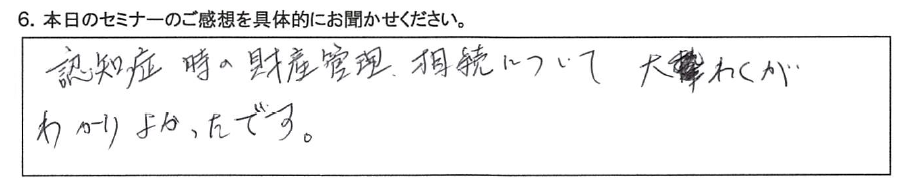 6. 本日のセミナーのご感想を具体的にお聞かせください。
認知症 時の財産管理、相続について 大わくが
わかりよかったです。